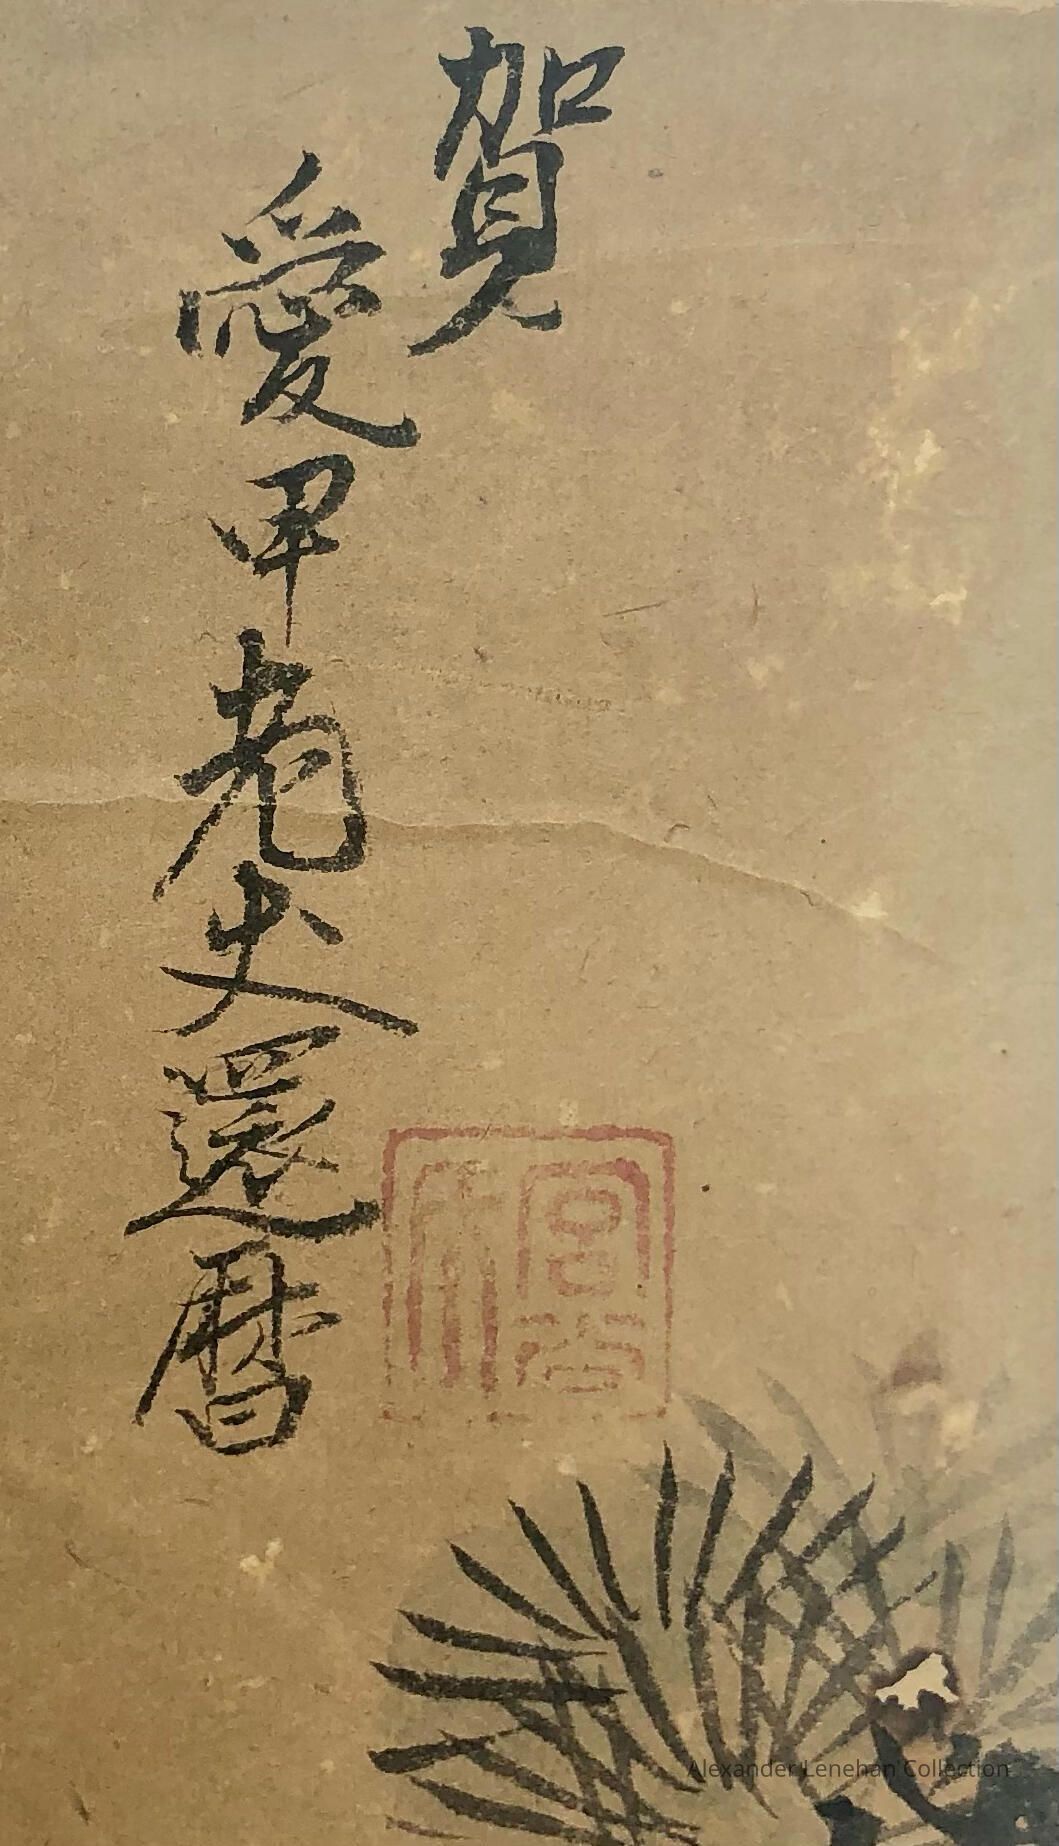 賀
愛甲老丈還暦
Alexander Lenehan Collection